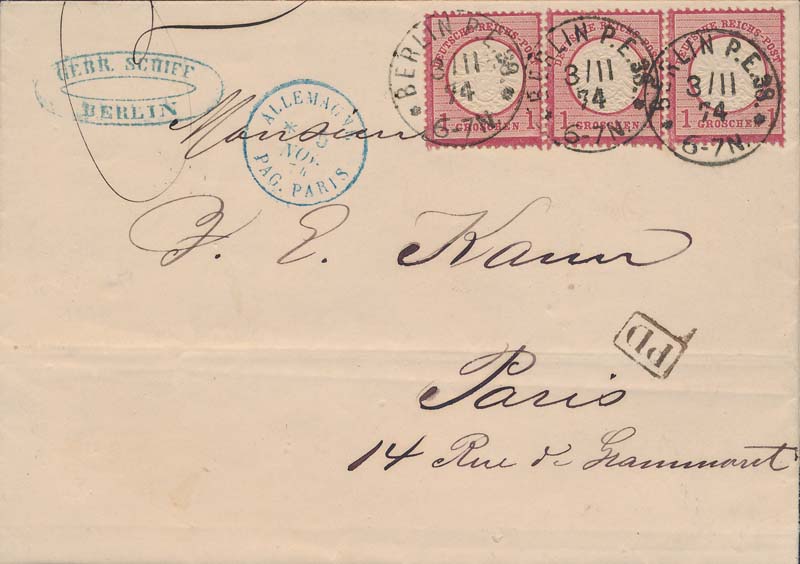 GEBR. SCHIFF
BERLIN
ALLEMAG
NOV.
74
PAG. PARIS
BERLIN P.E. 38.
3/11
74
6-7N.
DEUTSCHE REICHS-POST
1 GROSCHEN 1
BERLIN P.E. 38.
3/11
74
6-7N.
DEUTSCHE REICHS-POST
1 GROSCHEN
BERLIN P.E. 38.
3/11
74
6-7N.
DEUTSCHE REICHS-POST
1 GROSCHEN 1
Monsieur
E. Kann
PD
Paris
14 Rue de Grammont